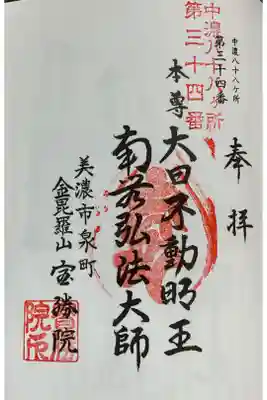 中濃八十八ケ所
第三十四番
中濃八十八ケ所
第三十四番
奉拝
本尊
大日不動明王
南無弘法大師
美濃市泉町
金毘羅山宝勝院